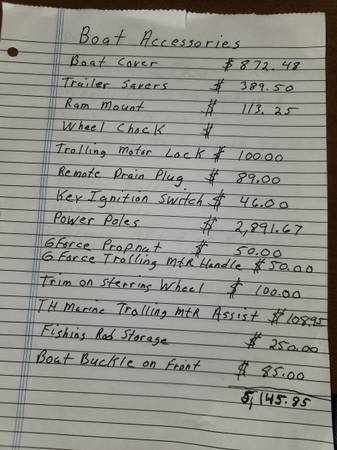 Boat Accessories
Boat Cover $872.48
Trailer Savers $ 389.50
Ram Mount $ 113.25
Wheel Chock $
Trolling Motor Lock $ 100.00
Remote Drain Plug $ 89.00
Key Ignition Switch $ 46.00
Power Poles $ 2,891.67
GForce Propnut $ 50.00
G Force Trolling MtR Handle $50.00
Trim on sterring Wheel $ 100.00
TH Marine Trolling MtR Assist $108.95
Fishing Rod Storage $ 250.00
Boat Buckle on Front $ 85.00
5,145.85